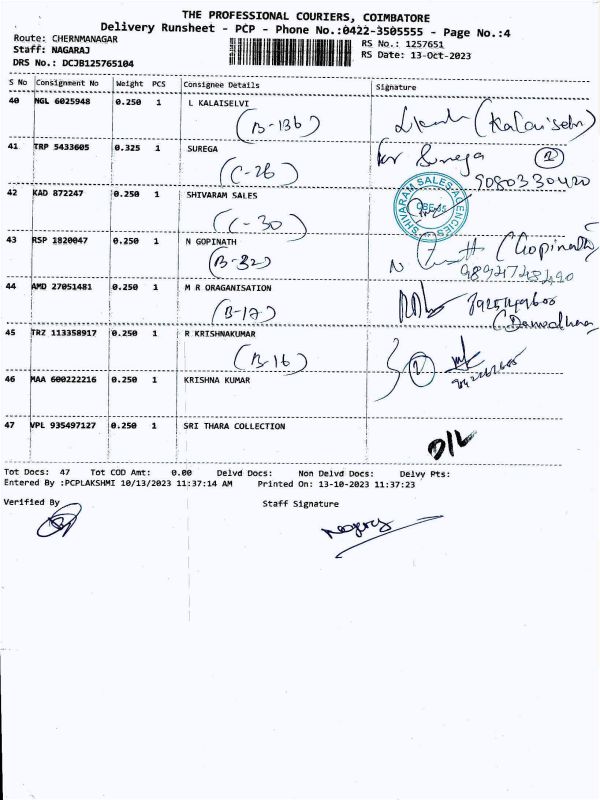 THE PROFESSIONAL COURIERS, COIMBATORE
Delivery Runsheet - PCP - Phone No.:0422-3505555 - Page No.:4
Route: CHERNMANAGAR
RS No.: 1257651
Staff: NAGARAJ
RS Date: 13-Oct-2023
DRS No.: DCJB125765104
S No Consignment No Weight PCS Consignee Details Signature
40 NGL 6025948 0.250 1 L KALAISELVI
(B-136) (Kalaiselvi)
41 TRP 5433605 0.325 1 SUREGA for Surega
(C-26) 2 9080330420
42 KAD 872247 0.250 1 SHIVARAM SALES
(C-30) SHIVARAM SALES AGENCIES CBE-45
43 RSP 1820047 0.250 1 N GOPINATH (Gopinath)
(B-32) N
44 AMD 27051481 0.250 1 M R ORAGANISATION
(B-17)
45 TRZ 113358917 0.250 1 R KRISHNAKUMAR
(B-16) 2
46 MAA 600222216 0.250 1 KRISHNA KUMAR
47 VPL 935497127 0.250 1 SRI THARA COLLECTION
D/L
Tot Docs: 47 Tot COD Amt: 0.00 Delvd Docs: Non Delvd Docs: Delvy Pts:
Entered By :PCPLAKSHMI 10/13/2023 11:37:14 AM Printed On: 13-10-2023 11:37:23
Verified By Staff Signature